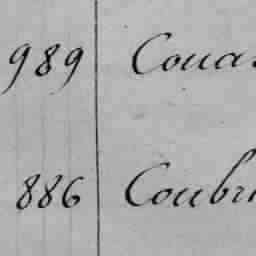 989 Couas
886 Coubr